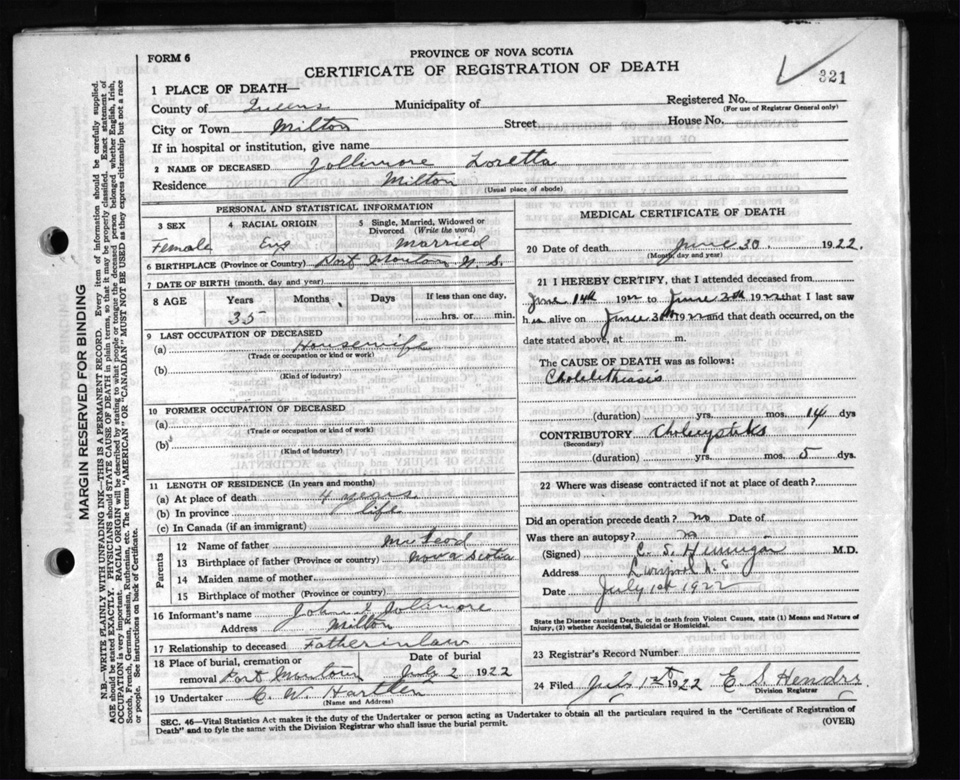 FORM 6
PROVINCE OF NOVA SCOTIA
CERTIFICATE OF REGISTRATION OF DEATH
321
1 PLACE OF DEATH—
County of Queens Municipality of Registered No.
(For use of Registrar General only)
City or Town Milton Street House No.
If in hospital or institution, give name
2 NAME OF DECEASED Jollimore Loretta
Residence Milton
(Usual place of abode)
PERSONAL AND STATISTICAL INFORMATION
3 SEX 4 RACIAL ORIGIN 5 Single, Married, Widowed or Divorced (Write the word)
Female Eng Married
6 BIRTHPLACE (Province or Country) Port Mouton N. S.
7 DATE OF BIRTH (month, day, and year)
8 AGE Years Months Days If less than one day,
35 hrs. or min.
9 LAST OCCUPATION OF DECEASED
(a) Housewife
(Trade or occupation or kind or work)
(b)
(Kind of industry)
10 FORMER OCCUPATION OF DECEASED
(a)
(Trade or occupation or kind of work)
(b)
(Kind of industry)
11 LENGTH OF RESIDENCE (In years and months)
(a) At place of death 4 years
(b) In province life
(c) In Canada (if an immigrant)
Parents
12 Name of father McLeod
13 Birthplace of father (Province or country) Nova Scotia
14 Maiden name of mother
15 Birthplace of mother (Province or country)
16 Informant's name John Jolimore
Address Milton
17 Relationship to deceased Father in law
18 Place of burial, cremation or removal Port Mouton Date of burial July 2 1922
19 Undertaker C. W. Hartlen
(Name and Address)
MEDICAL CERTIFICATE OF DEATH
20 Date of death June 30 1922.
(Month, day and year)
21 I HEREBY CERTIFY, that I attended deceased from
June 14th 1922 to June 30th 1922 that I last saw
h er alive on June 30th 1922 and that death occurred, on the
date stated above, at m.
The CAUSE OF DEATH was as follows:
Cholelithiasis
(duration) yrs. mos. 14 dys
CONTRIBUTORY Cholecystitis
(Secondary)
(duration) yrs. mos. 5 dys.
22 Where was disease contracted if not at place of death?
Did an operation precede death? no Date of
Was there an autopsy? no
(Signed) C. S. Hennigar M.D.
Address Liverpool N. S
Date July 1st 1922
State the Disease causing Death, or in death from Violent Causes, state (1) Means and Nature of
Injury, (2) whether Accidental, Suicidal or Homicidal.
23 Registrar's Record Number
24 Filed July 1st 1922 E. S.
Division Registrar
SEC. 46—Vital Statistics Act makes it the duty of the Undertaker or person acting as Undertaker to obtain all the particulars required in the "Certificate of Registration of
Death" and to fyle the same with the Division Registrar who shall issue the burial permit.
(OVER)
MARGIN RESERVED FOR BINDING
N.B.—WRITE PLAINLY WITH UNFADING INK—THIS IS A PERMANENT RECORD. Every item of information should be carefully supplied.
AGE should be stated EXACTLY. PHYSICIANS should STATE CAUSE OF DEATH in plain terms, so that it may be properly classified. Exact statement of
OCCUPATION is very important. RACIAL ORIGIN will be described by stating to what people or tongue the deceased person belonged whether English, Irish,
Scotch, French, German, Russian, Ruthenian, etc. The terms "AMERICAN" OR "CANADIAN" MUST NOT BE USED as they express citizenship but not a race
or people. See instructions on back of Certificate.